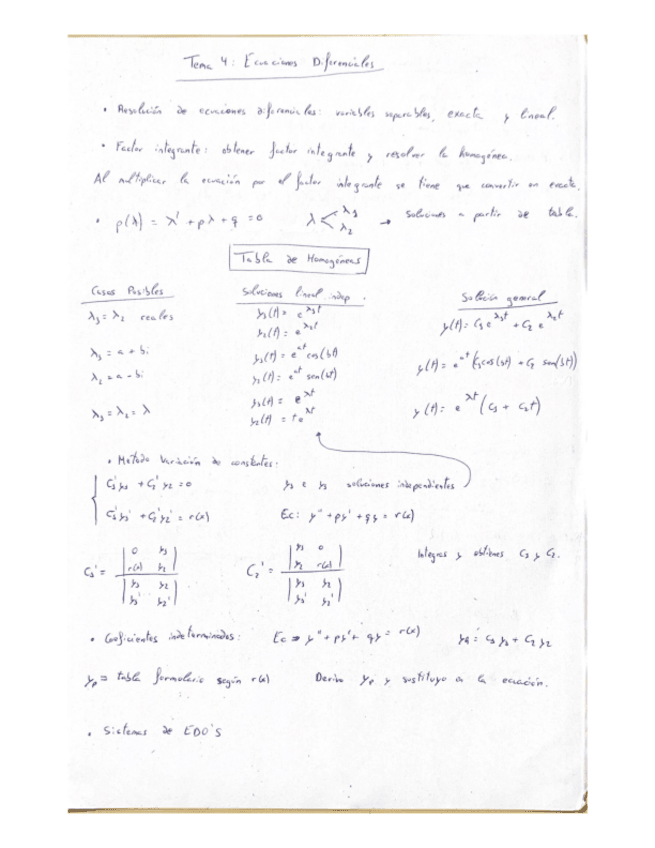 Tema 4: Ecuaciones Diferenciales
• Resolución de ecuaciones diferenciales: variables separables, exacta y lineal.
• Factor integrante: obtener factor integrante y resolver la homogénea.
Al multiplicar la ecuación por el factor integrante se tiene que convertir en exacta.
• p(λ) = λ' + pλ + q = 0 λ < λ1 λ2 → soluciones a partir de tabla.
Tabla de Homogéneas
Casos Posibles Soluciones lineal. indep. Solución general
λ1 = λ2 reales y1(t) = e^λ1t y2(t) = e^λ2t y(t) = C1 e^λ1t + C2 e^λ2t
λ1 = a + bi y1(t) = e^at cos(bt)
λ2 = a - bi y2(t) = e^at sen(bt) y(t) = e^at (C1 cos(bt) + C2 sen(bt))
λ1 = λ2 = λ y1(t) = e^λt y2(t) = t e^λt y(t) = e^λt (C1 + C2t)
• Metodo Variación de constantes:
C1' y1 + C2' y2 = 0 y1 e y2 soluciones independientes
C1' y1' + C2' y2' = r(x) Ec: y'' + py' + qy = r(x)
C1' = |0 y1 r(x) y2| / |y1 y2 y1' y2'| C2' = |y1 0 y2 r(x)| / |y1 y2 y1' y2'| Integras y obtienes C1 y C2.
• Coeficientes indeterminados: Ec ⇒ y'' + py' + qy = r(x) yh = C1 y1 + C2 y2
yp = tabla formulario según r(x) Derivo yp y sustituyo a la ecuación.
• Sistemas de EDO'S